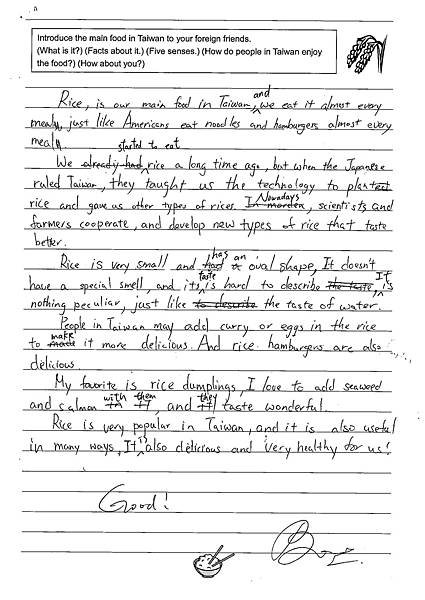 Introduce the main food in Taiwan to your foreign friends.
(What is it?) (Facts about it.) (Five senses.) (How do people in Taiwan enjoy
the food?) (How about you?)
Rice, is our main food in Taiwan, and we eat it almost every
meal, just like Americans eat noodles and hamburgers almost every
meal.
We already had started to eat rice a long time ago, but when the Japanese
ruled Taiwan, they taught us the technology to plant
rice and gave us other types of rices. In morden Nowadays, scientists and
farmers cooperate, and develop new types of rice that taste
better.
Rice is very small and had a has an oval shape, It doesn't
have a special smell, and its taste is hard to describe the taste, It is
nothing peculiar, just like to describe the taste of water.
People in Taiwan may add curry or eggs in the rice
to made make it more delicious. And rice hamburgers are also
delicious.
My favorite is rice dumplings, I love to add seaweed
and salmon with them, and they taste wonderful.
Rice is very popular in Taiwan, and it is also useful
in many ways, It is also delicious and very healthy for us!
Good!